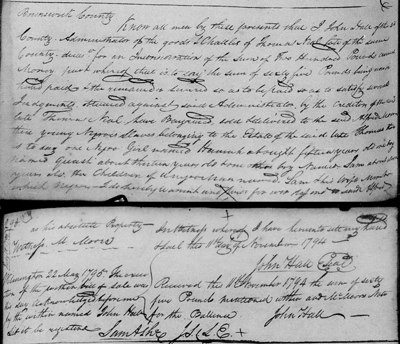 Brunswick County
Know all men by these presents that I John Hall of the sd
County Administrator of the goods & Chattles of Thomas Neal late of the same
County decd for an In consideration of the Sum of Two Hundred Pounds
Money Pour which that is to say the sum of sixty five Pounds being
paid & the remainder secured so as to be paid so as to satisfy several
Judgments obtained against said Administrator by the Creditors of the sd
late Thomas Neal have Bargained sold & delivered to the said Alfred Moore
three young Negroes Slaves belonging to the Estate of the said late Thomas
is to say one Negro Girl named Hannah about fifteen years old one boy
named Quash about thirteen years old one other boy Named Sam about
years old, the Children of Negro Man named Sam & his Wife
which Negroes I do hereby warrant and forever defend to said Alfred
as his absolute Property In Witness whereof I have hereunto set my hand
Witness. M. Moore & seal this 11 day of November 1794
John Hall Seal
Wilmington 22 May 1795. The
of the within bill of sale was
acknowledged before me
by the within named John Hall
Let it be registered
Sam Ashe J S L E
Received the 11 November 1794 the sum of sixty
five Pounds mentioned within and Mr Moores Note
for the Ballance John Hall